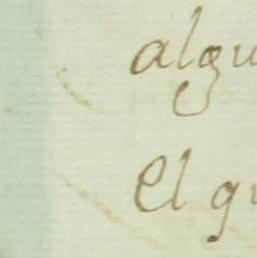 algu
El qu